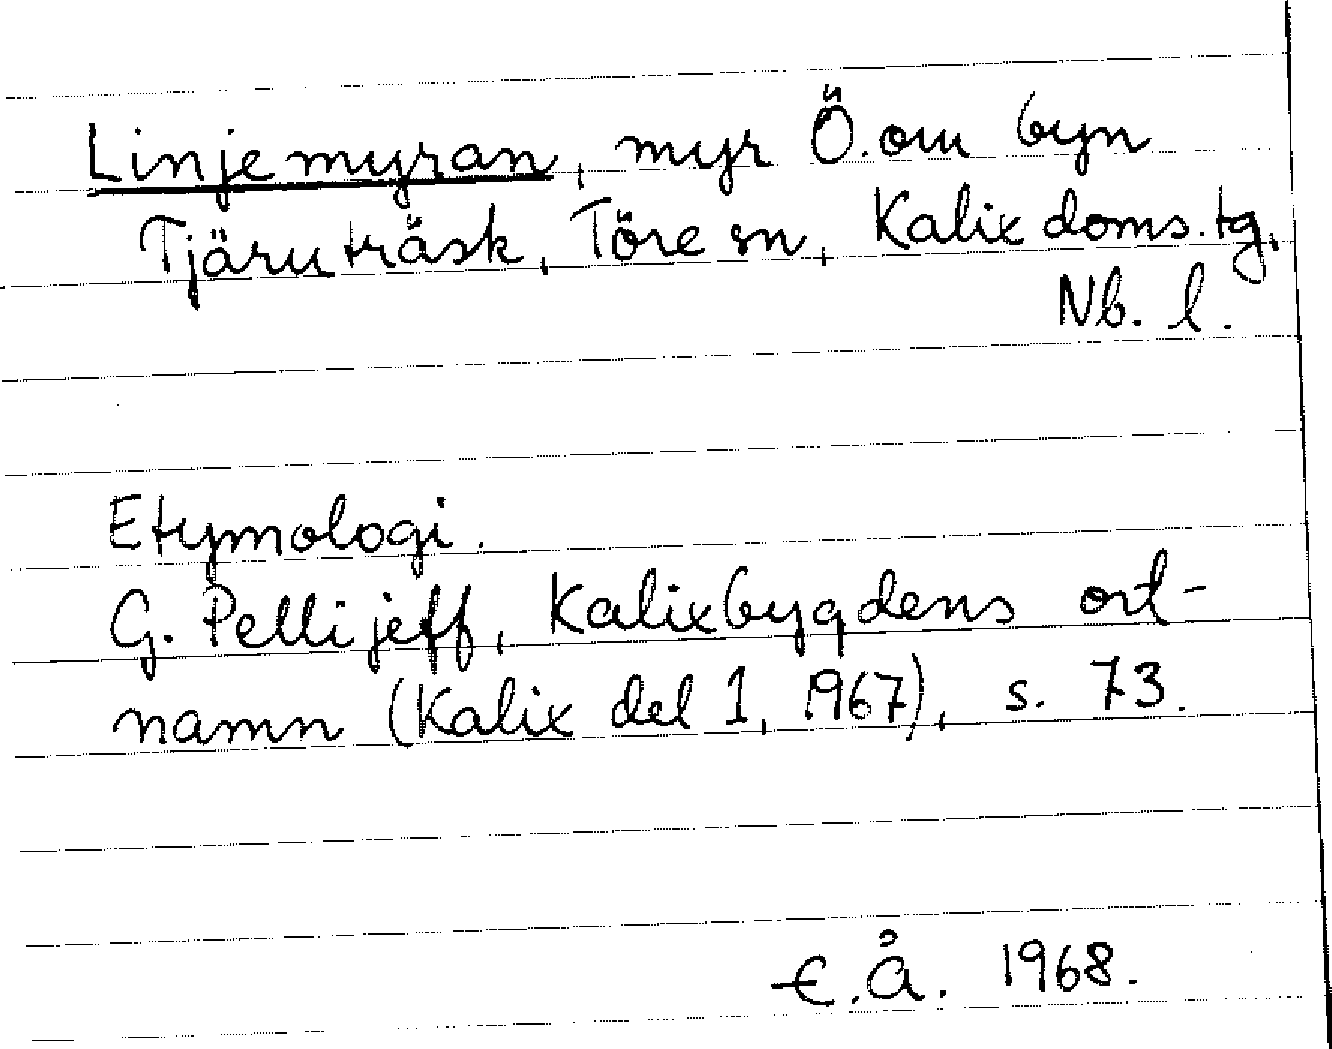 Linjemyran, myr Ö. om byn
Tjäruträsk, Töre sn, Kalix doms. tg,
Nb. l.
Etymologi.
G. Pellijeff, Kalixbygdens ort-
namn (Kalix del 1, 1967), s. 73.
E.Å. 1968.